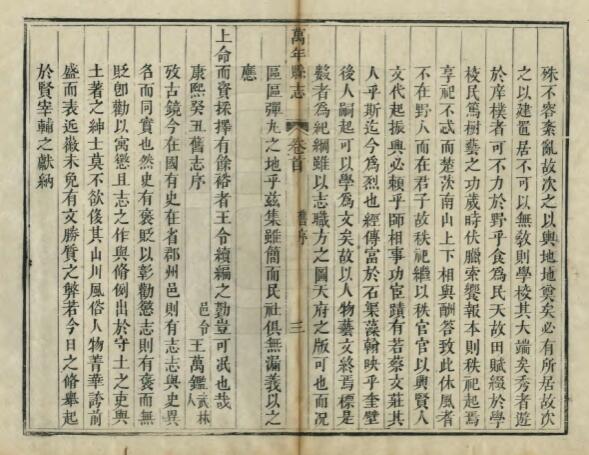 殊不容紊亂故次之以輿地地奠矣必有所居故次
之以建置居不可以無敎則學校其大端矣秀者遊
於庠樸者可不力於野乎食爲民天故田賦綴於學
校民篤樹藝之功歲時伏臘索饗報本則秩祀起焉
享祀不忒而楚茨南山上下相與酬答致此休風者
不在野人而在君子故秩祀繼以秩官官以興賢人
文代起振興必賴乎師相事功宦蹟有若蔡文莊其
人乎斯迄今爲烈也經傳富於石渠藻翰映乎奎壁
後人嗣起可以學爲文矣故以人物藝文終焉標是
數者爲紀綱雖以志職方之圖天府之版可也而况
萬年縣志 卷首 舊序 三
區區彈丸之地乎茲集雖簡而民社俱無漏義以之
應
上命而資採擇有餘裕者王令續編之勤豈可泯也哉
康熙癸丑舊志序
邑令王萬鑑武林人
攷古鏡今在國有史在省郡州邑則有志志與史異
名而同實也然史有褒貶以彰勸懲志則有褒而無
貶卽勸以寓懲且志之作與脩倒出於守土之吏與
土著之紳士莫不欲侈其山川風俗人物菁華誇前
盛而表近徽未免有文勝質之弊若今日之脩舉起
於賢宰輔之獻納